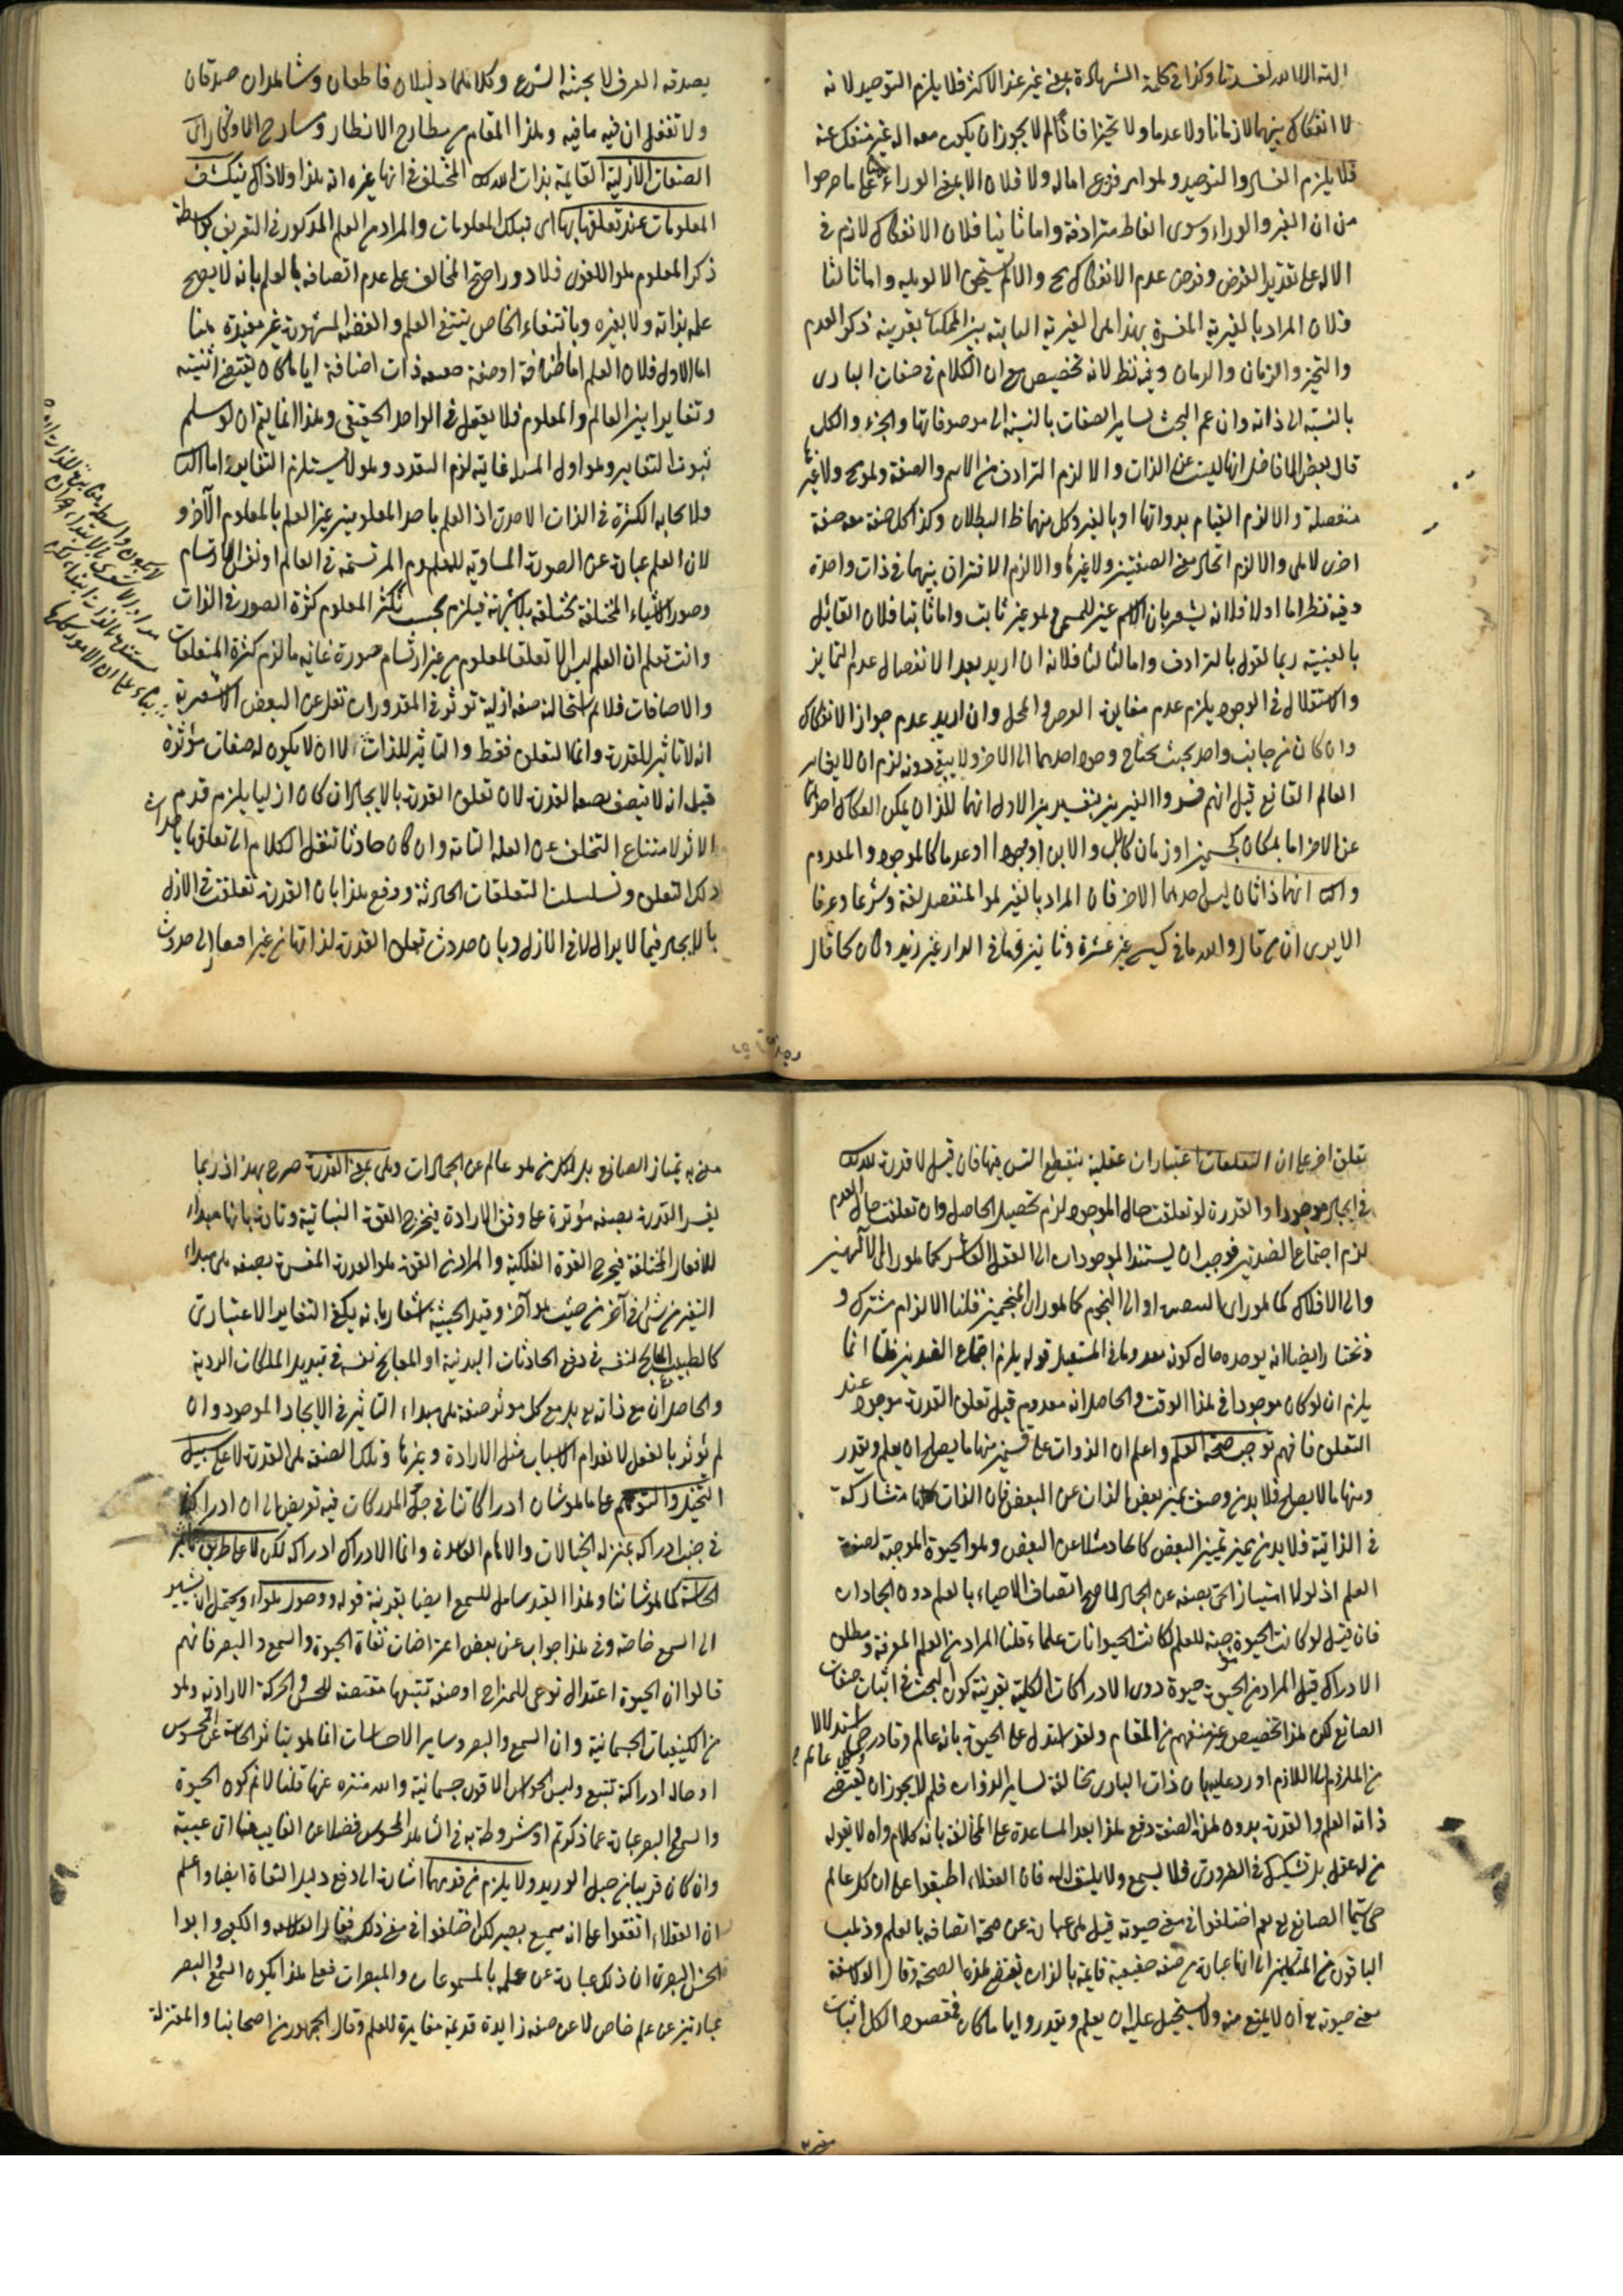 الهة الا الله لفسدتا وكذا في كلمة الشهادة بمعنى غير عند الاكثر فلا يلزم التوحيد لانه
لا انفكاك بينهما لا زمانا ولا عدما ولا تحيزا فاذا لم لا يجوز ان يكون معه اله غير منفك عنه
فلا يلزم الفساد والتوحيد وهو امر فوق اماله ولا فلان الا بمعنى الوراء على ما صرحوا
من ان الغير والوراء وسوى الفاظ مترادفة واما ثانيا فلان الانفكاك لازم في
الاله على تقدير الفرض وفرض عدم الانفكاك مح والا لم يستحق الالوهية واما ثالثا
فلان المراد بالغيرية المفسرة بهذا هي الغيرية الثابتة بين الممكنات بقرينة ذكر العدم
والتحيز والزمان والزمان وفيه نظر لانه تخصيص مع ان الكلام في صفات البارى
بالنسبة الى ذاته وان عم البحث لساير الصفات بالنسبة الى موصوفاتها والجزء والكل
قال بعض الافاضل انها ليست عين الذات والا لزم الترادف بين الاسم والصفة وهو مح ولا غيرها
منفصلة والا لزم القيام بذواتها او بالغير وكل منهما ظ البطلان وكذا كل صفة معه صفة
اخرى لا هى والا لزم اتحاد معنى الصفتين ولا غيرها والا لزم الافتراق بينهما في ذات واحدة
وفيه نظر اما اولا فلانه يشعر بان الاسم عين المسمى وهو غير ثابت واما ثانيا فلان القائل
بالعينية ربما يقول بالترادف واما ثالثا فلانه ان اريد بعد الانفصال عدم التمايز
والاستقلال في الوجود يلزم عدم مغايرة العرض والمحل وان اريد عدم جواز الانفكاك
وان كان من جانب واحد بحيث يحتاج وجود احدهما الى الاخر ولا يبقى دونه لزم ان لا يغاير
العالم الصانع قيل انهم فسروا الغيرين بتفسيرين الاول انهما اللذان يمكن انفكاك احدهما
عن الاخر اما بمكان كجسمين او زمان كالاب والابن او وجودا او عدما كالموجود والمعدوم
والثانى انهما ذاتان ليس احدهما الاخر فان المراد بالغير هو المنفصل لغة وشرعا وعرفا
الا يرى ان من قال والله ما في كيسى غير عشرة وثانيز وما في الدار غير زيد وكان كما قال
يصدقه العرف لا يحنثه الشرع وكلاهما دليلان قاطعان وشاهدان صدقان
ولا تغفل ان فيه ما فيه وهذا المقام من مطارح الانظار ومسارح الاوكار اى
الصفات الازلية القايمة بذات الله تع المختلف في انها غيره انه هذا ولا ذاك ينكشف
المعلومات عند تعلقها بها اى بتلك المعلومات والمراد من العلم المذكور في التعريف بواسطة
ذكر المعلوم هو اللغوى فلا دور احتج المخالف على عدم اتصافه بالعلم بانه لا يصح
علمه بذاته ولا بغيره وبانتفاء الخاص ينتفى العلم والقضية المشهورة غير مفيدة هنا
اما الاول فلان العلم اما اضافة او صفة حقيقية ذات اضافة اياما كان يقتضى اثنينية
وتغايرا بين العالم والمعلوم فلا يعقل في الواحد الحقيقى وهذا انما يتم ان لو سلم
ثبوت التغاير وهو اول المسئلة غايته لزم التعدد وهو لا يستلزم التغاير واما الثانى
فلايجابه الكثرة في الذات الاحدى اذ العلم باحد المعلومين غير العلم بالمعلوم الآخر و
لان العلم عبارة عن الصورة المساوية للمعلوم المرتسمة في العالم او نفس الارتسام
وصور الاشياء المختلفة مختلفة بلا شبهة فيلزم بحسب تكثر المعلوم كثرة الصور في الذات
وانت تعلم ان العلم ليس الا تعلق المعلوم من غير ارتسام صورة غايته ما لزم كثرة المتعلقات
والاضافات فلا لم استحالته صفة ازلية تؤثر في المقدورات نقل عن البعض الاشعرية
انه لا تاثير للقدرة وانما التعلق فقط والتاثير للذات لا ان لا يكون له صفات مؤثرة
قيل انه لا يتصف بصفة القدرة لان تعلق القدرة بالايجاد ان كان ازليا يلزم قدم
الاثر لامتناع التخلف عن العلة التامة وان كان حادثا ننقل الكلام الى تعلقها باحداث
ذلك التعلق وتسلسلت التعلقات الحادثة ودفع هذا بان القدرة تعلقت في الازل
بالايجاد فيما لا يزال لا في الازل وبان حدوث تعلق القدرة لذاتها من غير افتقار الى حدوث
تعلق اخر على ان التعلقات اعتبارات عقلية ينقطع التس فيها فان قيل لا قدرة لله تع
في ايجاد موجود والقدرة لو تعلقت حال الموجود لزم تحصيل الحاصل وان تعلقت حال العدم
لزم اجتماع الضدين فوجب ان يستند الموجودات الى العقل العاشر كما هو راى الآلهيين
والى الافلاك كما هو راى البعض او الى النجوم كما هو راى المنجمين قلنا الالزام مشترك و
نختار ايضا انه يوجده حال كونه معدوما في المستقبل قوله يلزم اجتماع الضدين قلنا انما
يلزم ان لو كان موجودا في هذا الوقت والحاصل انه معدوم قبل تعلق القدرة موجود عند
التعلق فافهم توجب صحة العلم واعلم ان الذوات على قسمين منها ما يصح ان يعلم ويقدر
ومنها ما لا يصح فلا بد من وصف يميز بعض الذات عن البعض فان الذات كلها متشاركة
في الذاتية فلا بد من مميز تميز البعض كالجماد مثلا عن البعض وهو الحيوة الموجبة لصفة
العلم اذ لولا امتياز الحى بصفة عن الجماد لما صح اتصاف الاحياء بالعلم دون الجمادات
فان قيل لو كانت الحيوة موجبة للعلم لكانت الحيوانات علماء قلنا المراد من العلم المعرفة ومطلق
الادراك قيل المراد من الحيوة حيوة ذوى الادراكات الكلية بقرينة كون البحث في اثبات صفات
الصانع لكن هذا تخصيص غير منفهم من المقام ولقد استدل على الحيوة بانه عالم وقادر استدلالا
من الملزوم الى اللازم اورد عليه بان ذات البارى مخالفة لساير الذوات فلم لا يجوز ان يقتضى
ذاته العلم والقدرة بدون هذه الصفة دفع هذا بعد المساعدة على المخالفة بانه كلام واه لا يقوله
من له عقل بل تشكيك في الضرورى فلا يسمع ولا يلتفت اليه فان العقلاء اطبقوا على ان كل عالم
حى سيما الصانع نعم اختلفوا في معنى حيوته قيل هى عبارة عن صحة اتصافه بالعلم وذهب
الباقون من المتكلمين الى انها عبارة عن صفة حقيقية قايمة بالذات يقتضى هذه الصحة وقال الفلاسفة
معنى حيوته تع ان لا يمتنع منه ولا يستحيل عليه ان يعلم ويقدر واياما كان فمقصود الكل اثبات
معنى به يمتاز الصانع بل كل من هو عالم عن الجمادات وهى بمعنى القدرة صرح بهذا اذ ربما
يفسر القدرة بصفة مؤثرة على وفق الارادة فيخرج القوة النباتية وتارة بانها مبداء
للافعال المختلفة فيخرج القوة الفلكية والمراد من القوة هو القدرة المفسرة بصفة هى مبداء
التغير من شئ في آخر من حيث هو آخر وقيد الحيثية اشعار بانه يكفى التغاير الاعتبارى
كالطبيب المعالج لنفسه في دفع الحادثات البدنية او المعالج نفسه في تبديل الملكات الردية
والحاصل ان مع ذاته تع بل مع كل مؤثر صفة هى مبداء التاثير في الايجاد الموجود وان
لم تؤثر بالفعل لانعدام الاسباب مثل الارادة وغيرها وتلك الصفة هى القدرة لا على سبيل
التخيل والتوهم على ما هو شان ادراكاتنا في جل المدركات فيه تعريض الى ان ادراكنا
في جنب ادراكه بمنزلة الخيالات والاوهام الفاسدة وانما الادراك ادراكه لكن لا على طريق تاثير
الحاسة كما هو شاننا وهذا القيد شامل للسمع ايضا بقرينة قوله ووصول هواء ويحتمل ان يشير
الى السمع خاصة وفي هذا جواب عن بعض اعتراضات نفاة الحيوة والسمع والبصر فانهم
قالوا ان الحيوة اعتدال نوعى للمزاج او صفة تتبعها مقتضية للحس والحركة الارادية وهو
من الكيفيات الجسمانية وان السمع والبصر وساير الاحساسات انما هو بتاثر الحاسة عن المحسوس
او حالة ادراكية تتبع وليس الحواس الا قوى جسمانية والله منزه عنها قلنا لانم كون الحيوة
والسمع والبصر عبارة عما ذكرتم او مشروطة به في الشاهد المحسوس فضلا عن الغايب هنا اى غيبة
وان كان قريبا من حبل الوريد ولا يلزم من قدمهما اشارة الى دفع دليل النفاة ايضا واعلم
ان العقلاء اتفقوا على انه سميع بصير لكن اختلفوا في معنى ذلك فقال الفلاسفة والكعبى وابو
الحسن البصرى ان ذلك عبارة عن علمه بالمسموعات والمبصرات فعلى هذا يكون السمع والبصر
عبارتين عن علم خاص لا عن صفة زايدة قديمة مغايرة للعلم وقال الجمهور من اصحابنا والمعتزلة